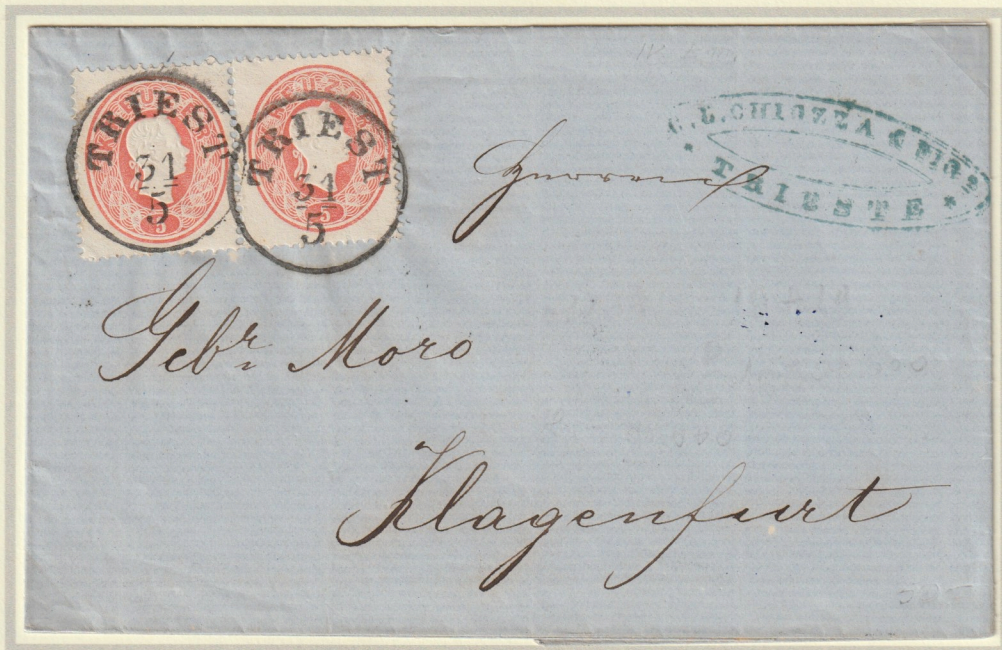 TRIEST
31
5
5
TRIEST
31
5
5
L. CHIOZZA & FIG.º
TRIESTE
Herren
Gebr. Moro
Klagenfurt